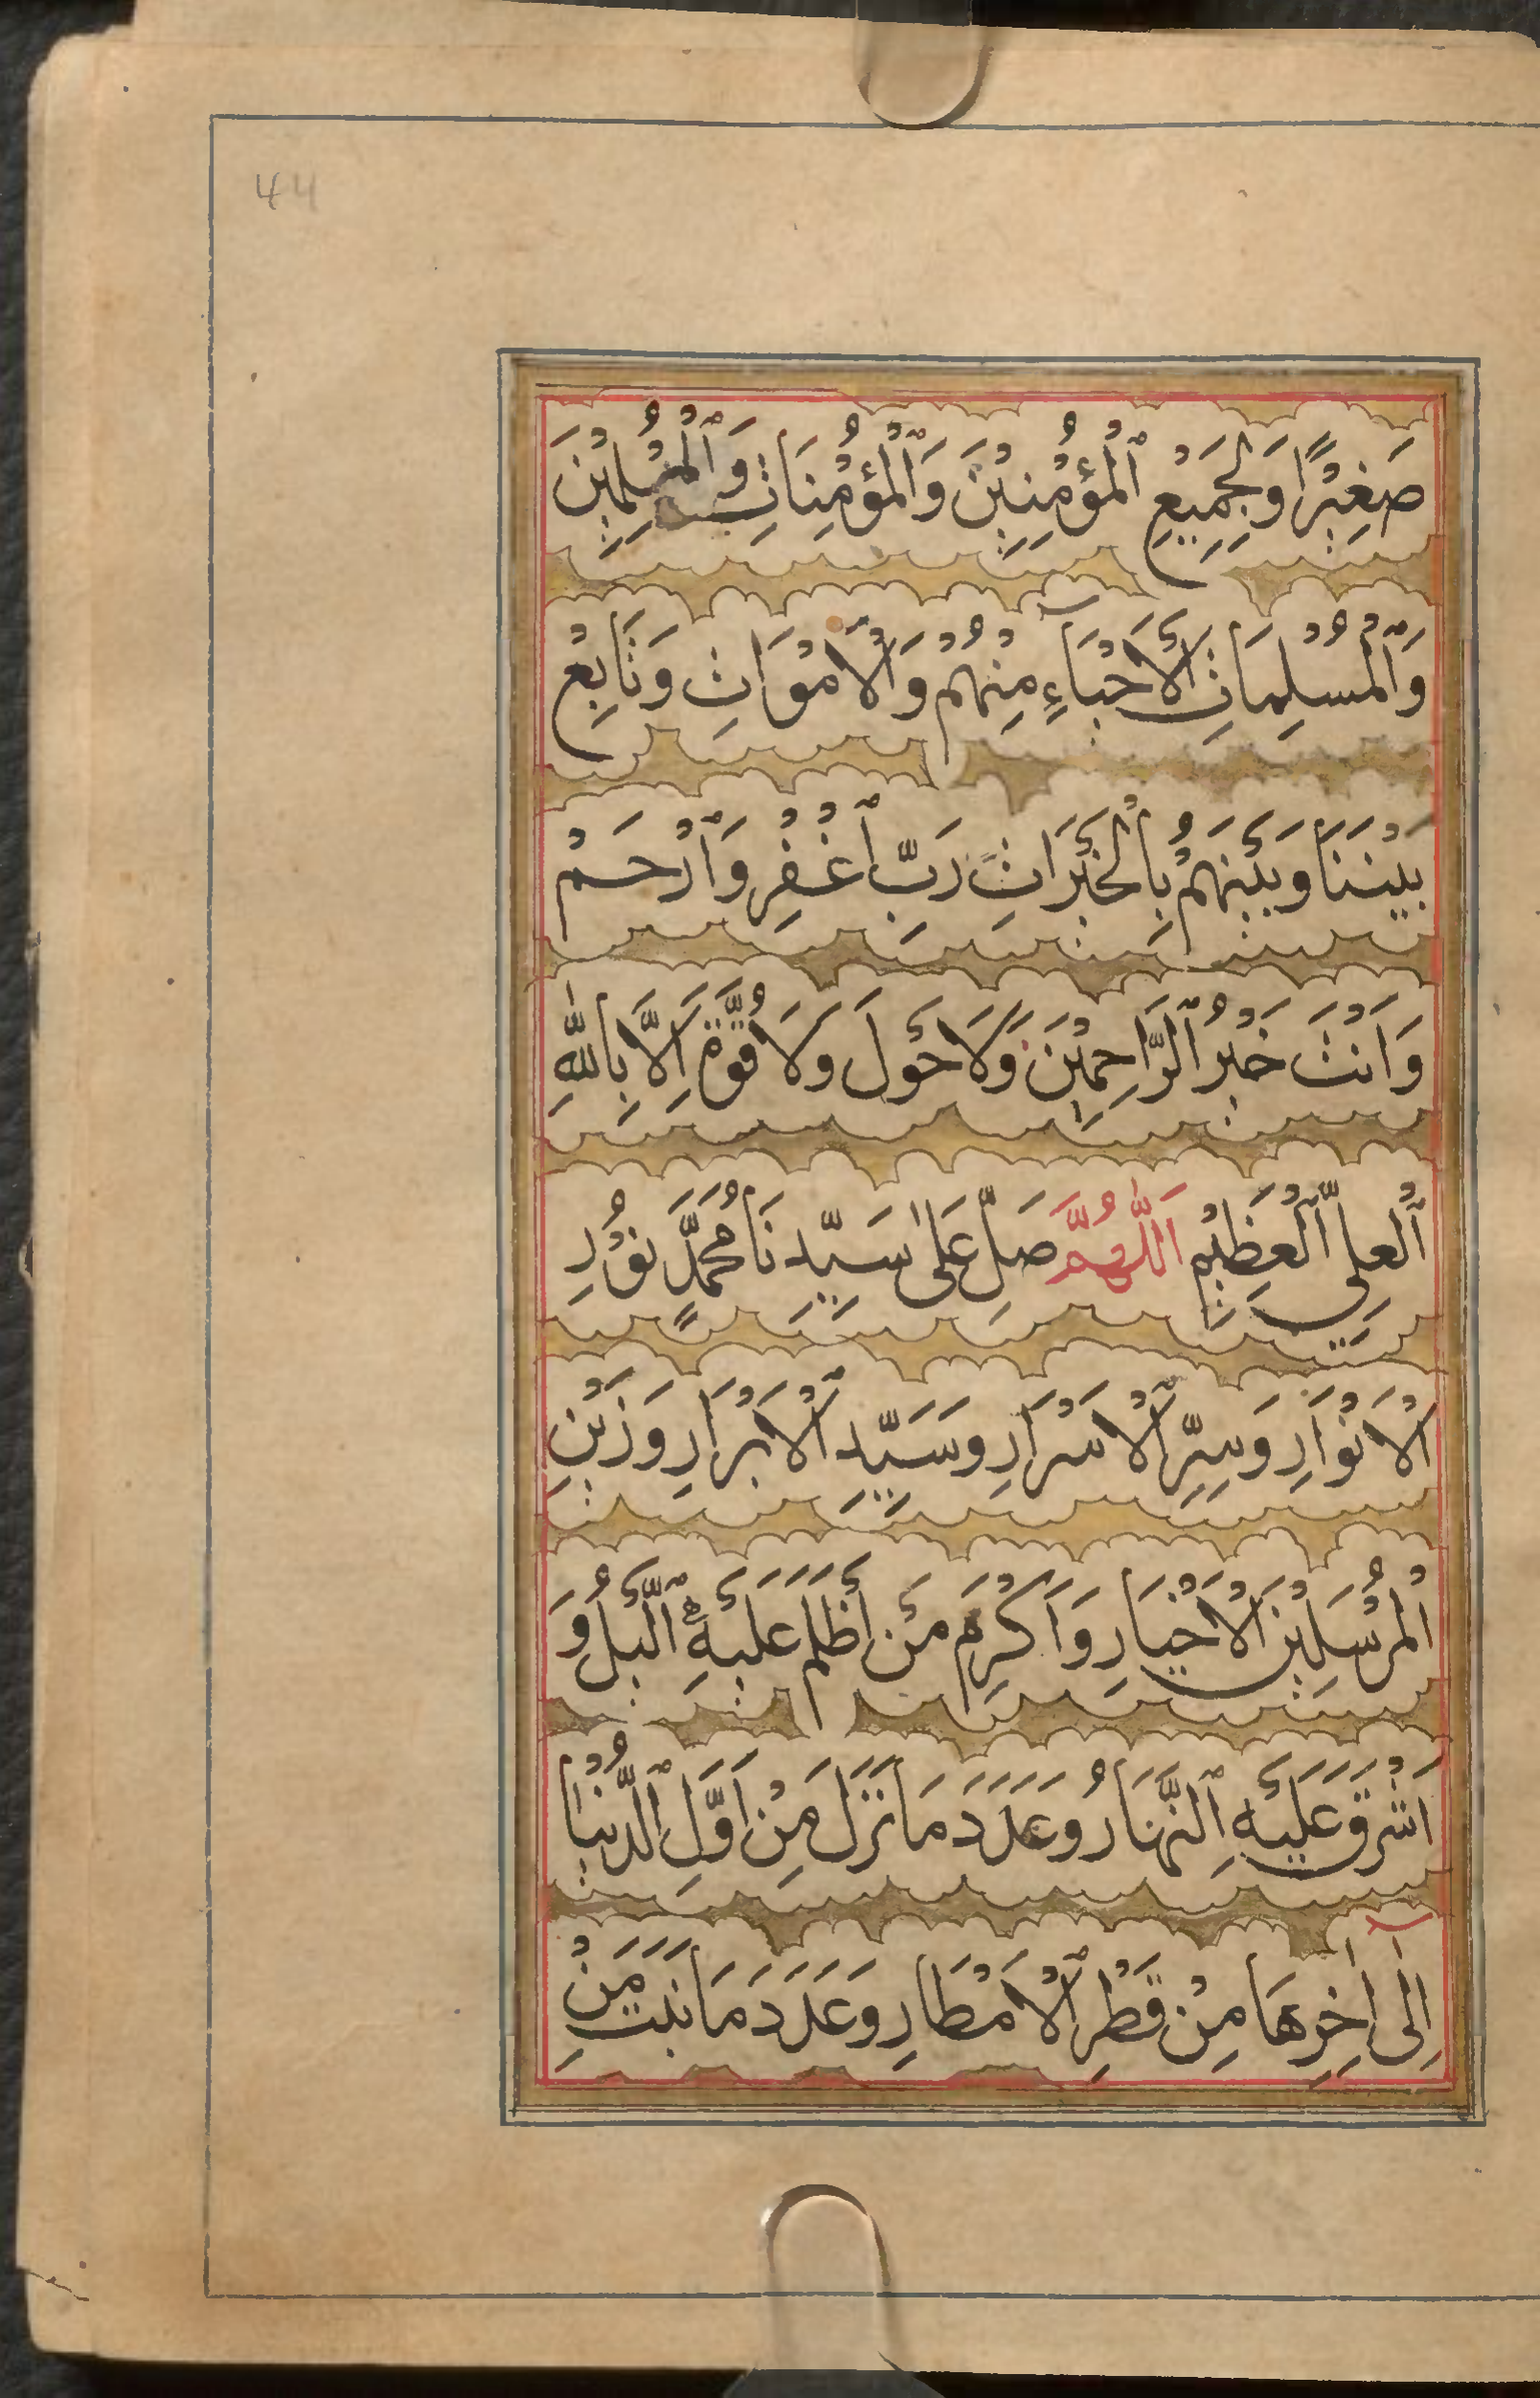 44
صَغِيْرًا وَلِجَمِيْعِ ٱلْمُؤْمِنِيْنَ وَٱلْمُؤْمِنَاتِ وَٱلْمُسْلِمِيْنَ
وَٱلْمُسْلِمَاتِ الْأَحْيَآءِ مِنْهُمْ وَالْأَمْوَاتِ وَتَابِعْ
بَيْنَنَا وَبَيْنَهُمْ بِالْخَيْرَاتِ رَبِّ ٱغْفِرْ وَٱرْحَمْ
وَاَنْتَ خَيْرُ ٱلرَّاحِمِيْنَ وَلَا حَوْلَ وَلَا قُوَّةَ اِلَّا بِاللّٰهِ
ٱلْعَلِيِّ ٱلْعَظِيْمِ اَللّٰهُمَّ صَلِّ عَلٰى سَيِّدِنَا مُحَمَّدٍ نُوْرِ
الْاَنْوَارِ وَسِرِّ ٱلْاَسْرَارِ وَسَيِّدِ ٱلْاَبْرَارِ وَزَيْنِ
الْمُرْسَلِيْنَ الْاَخْيَارِ وَاَكْرَمِ مَنْ اَظْلَمَ عَلَيْهِ ٱلَّيْلُ وَ
اَشْرَقَ عَلَيْهِ ٱلنَّهَارُ وَعَدَدَ مَا نَزَلَ مِنْ اَوَّلِ ٱلدُّنْيَا
اِلٰٓى اٰخِرِهَا مِنْ قَطْرِ ٱلْاَمْطَارِ وَعَدَدَ مَا نَبَتَ مِنْ